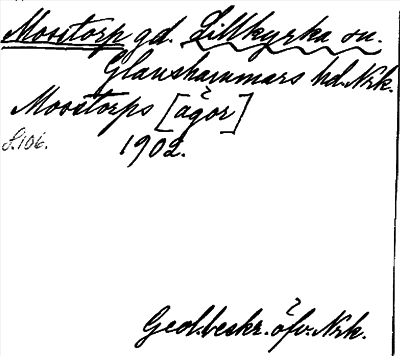 Mosstorp gd. Lillkyrka sn.
Glanshammars hd. Nrk.
Mosstorps [ägor]
S. 106. 1902.
Geol. beskr. öfv. Nrk.